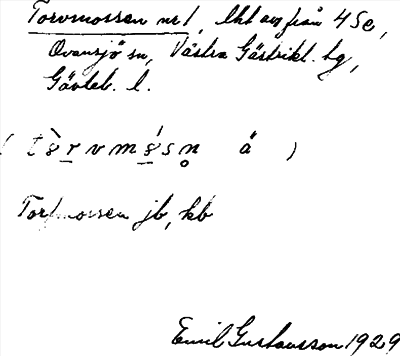 Torvmossen nr 1, lht avs från 4 Se,
Ovansjö sn, Västra Gästrikl. tg,
Gävleb. l.
( tòrvmósn̥ å )
Torfmossen jb, kb
Emil Gustavsson 1929